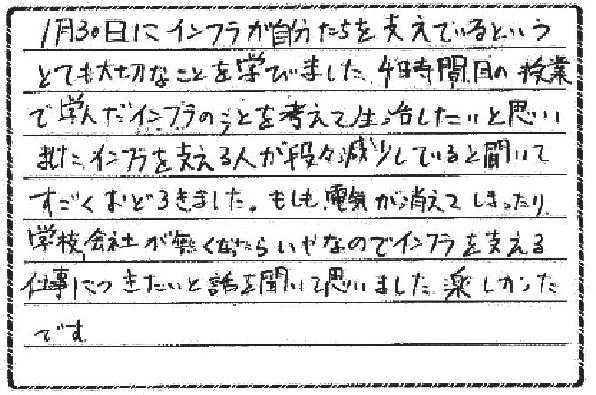 1月30日にインフラが自分たちを支えているという
とても大切なことを学びました。4時間目の授業
で学んだインフラのことを考えて生活したいと思い
ました。インフラを支える人が段々減少していると聞いて
すごくおどろきました。もしも電気が消えてしまったり、
学校、会社が無くなったらいやなのでインフラを支える
仕事につきたいと話を聞いて思いました。楽しかった
です